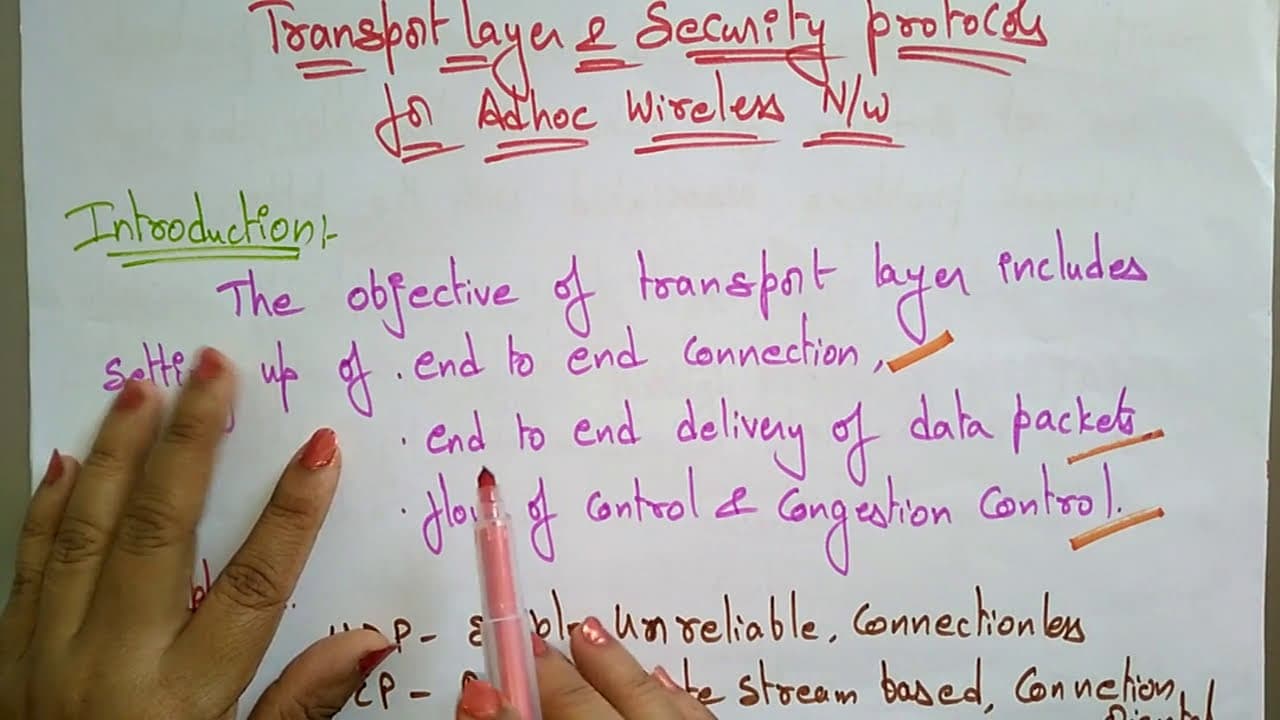 Transport layer & Security protocols
for Adhoc Wireless N/W
Introduction:-
The objective of transport layer includes
up of . end to end connection,
. end to end delivery of data packets
. of control & Congestion Control.
Unreliable, Connectionless
stream based, Connetion